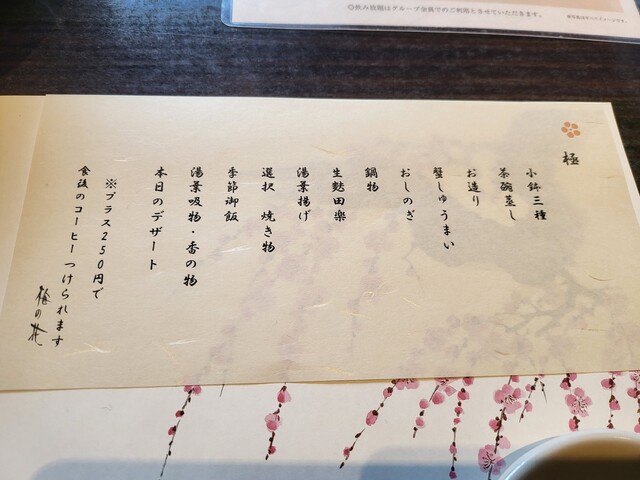 ◎飲み放題はグループ全員でのご利用とさせていただきます。
極
小鉢三種
茶碗蒸し
お造り
蟹しゅうまい
おしのぎ
鍋物
生麩田楽
湯葉揚げ
選択 焼き物
季節御飯
湯葉吸物・香の物
本日のデザート
※プラス250円で
食後のコーヒーつけられます
梅の花